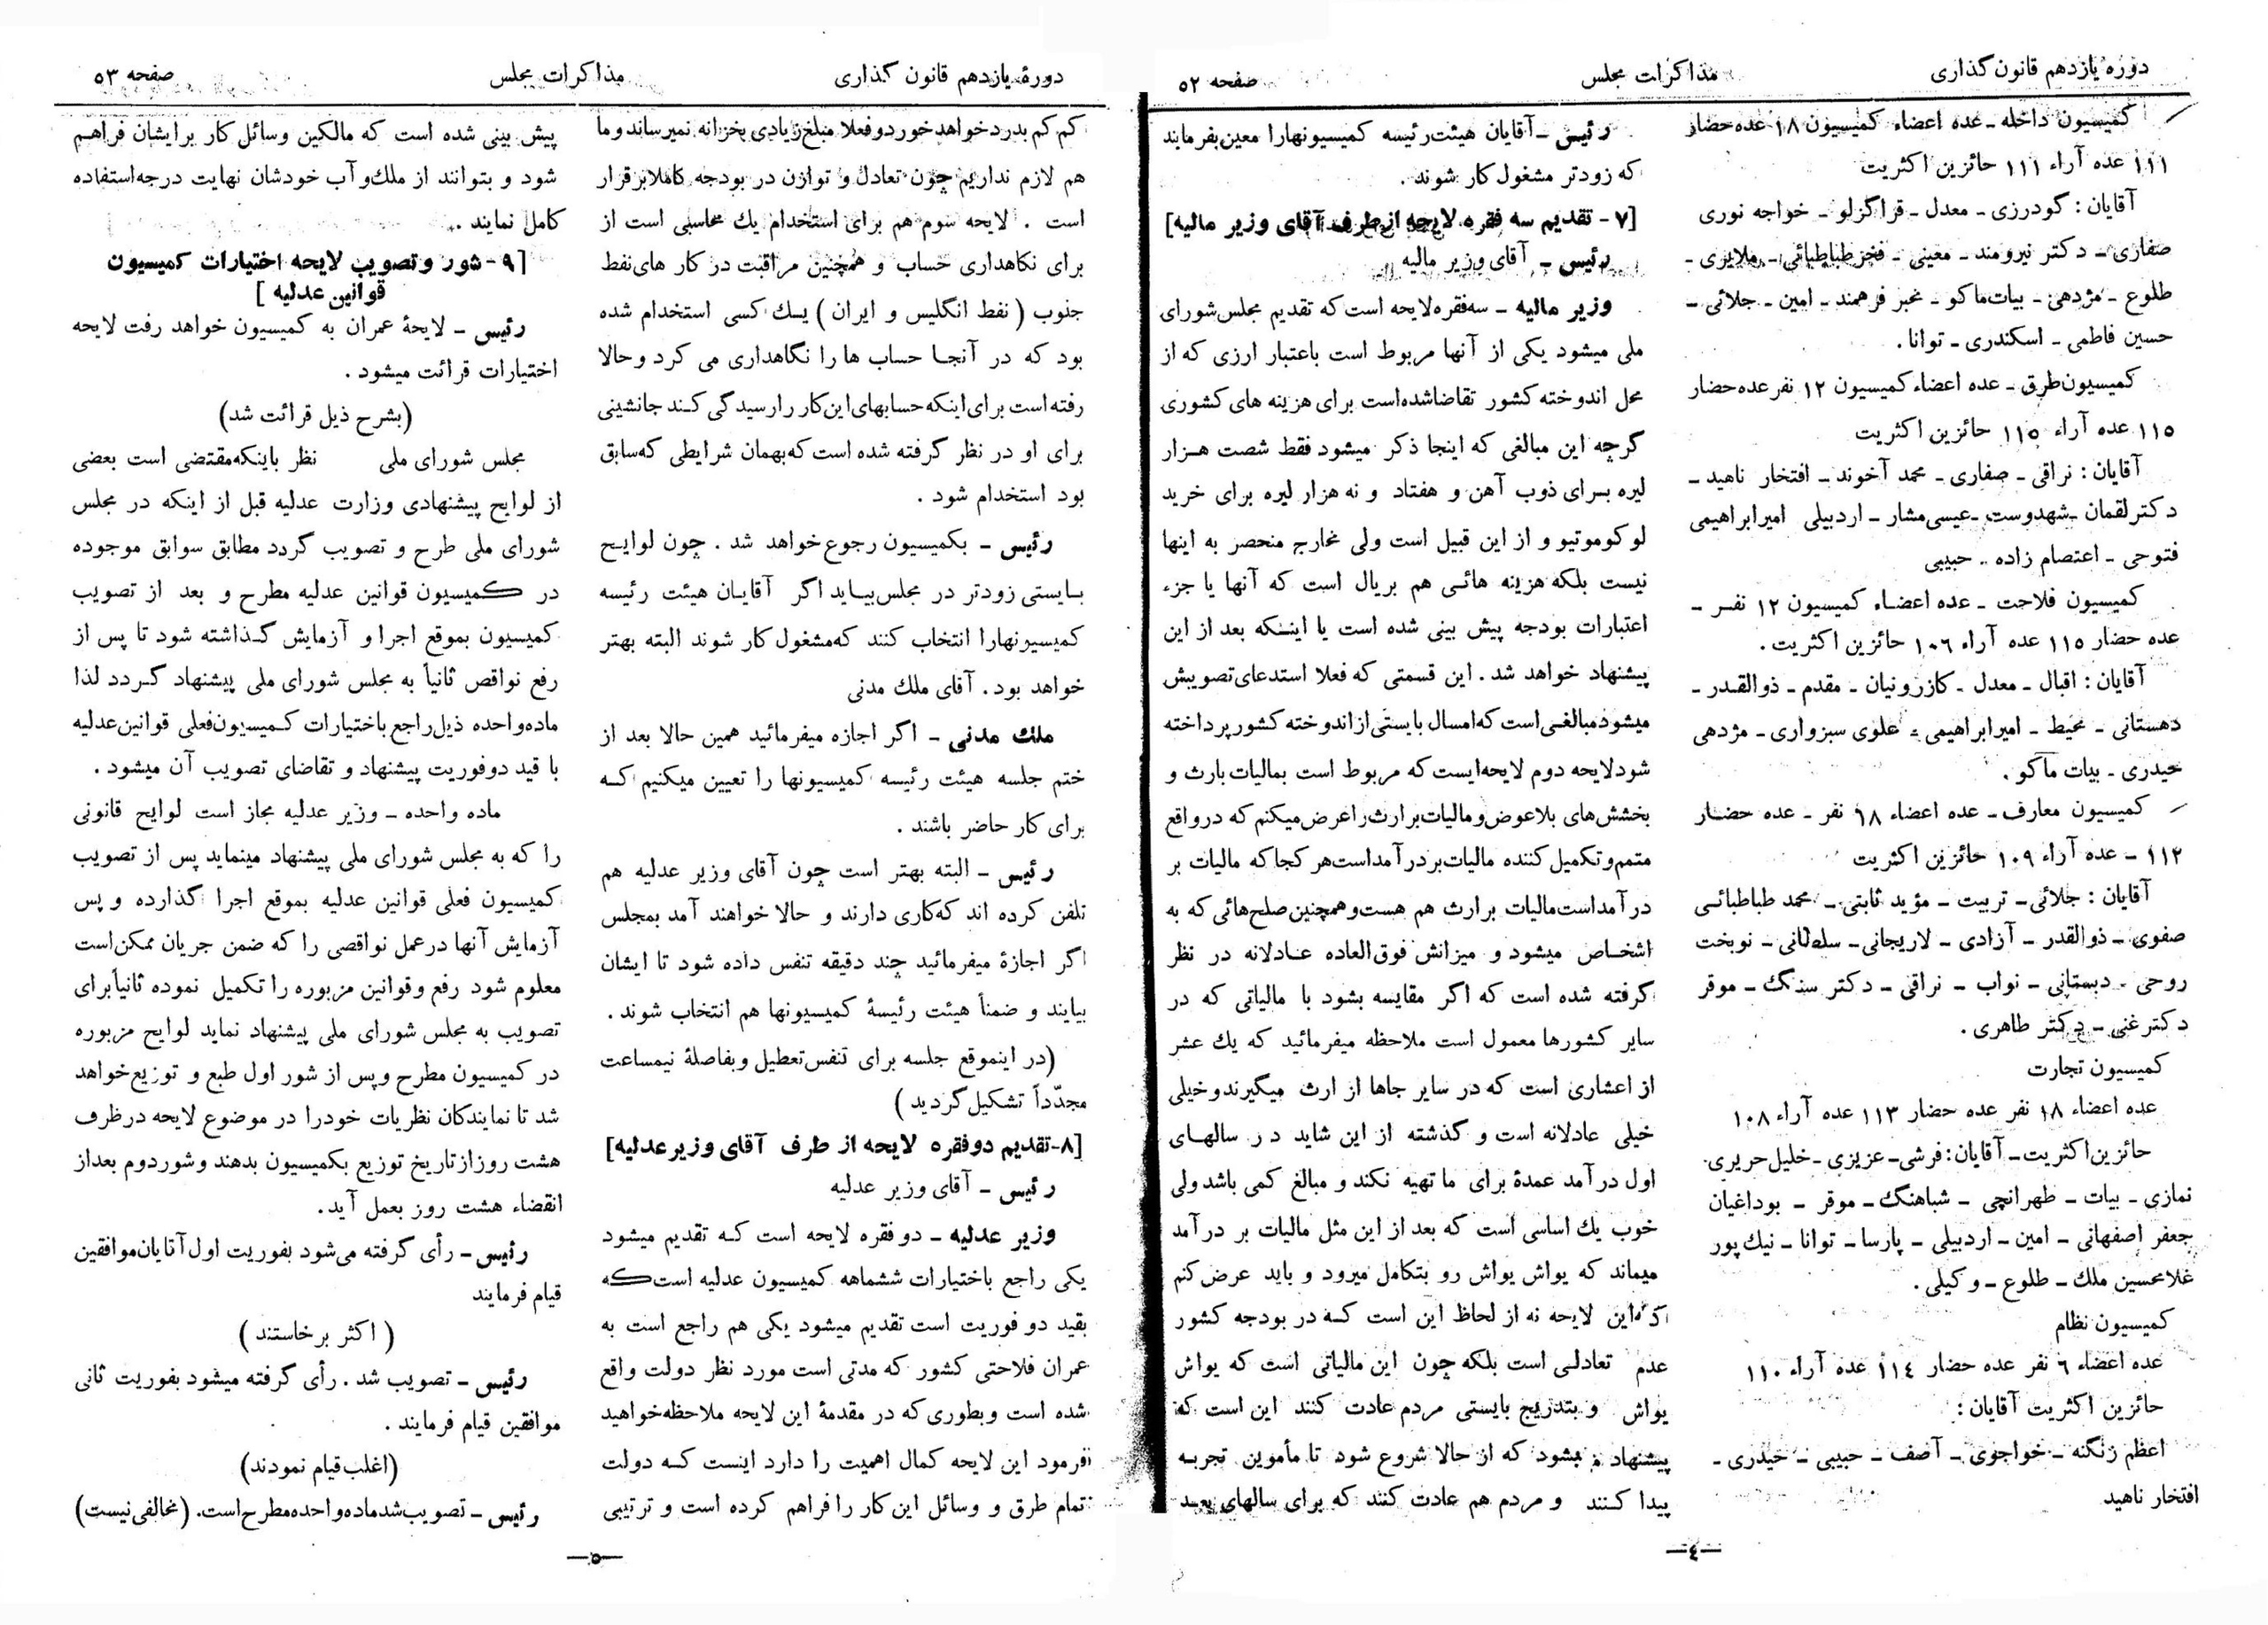 دوره یازدهم قانون گذاری
مذاکرات مجلس
صفحه ۵۲
کمیسیون داخله ـ عده اعضاء کمیسیون ۱۸ عده حضار
۱۱۱ عده آراء ۱۱۱ حائزین اکثریت
آقایان : گودرزی ـ معدل ـ قراگزلو ـ خواجه نوری
صفاری ـ دکتر نیرومند ـ معینی ـ فخر طباطبائی ـ ملایری ـ
طلوع ـ مژدهی ـ بیات ماکو ـ مخبر فرهمند ـ امین ـ جلائی ـ
حسین فاطمی ـ اسکندری ـ توانا .
کمیسیون طرق ـ عده اعضاء کمیسیون ۱۲ نفر عده حضار
۱۱۵ عده آراء ۱۱۵ حائزین اکثریت
آقایان : نراقی ـ صفاری ـ محمد آخوند ـ افتخار ناهید ـ
دکتر لقمان ـ شهدوست ـ عیسی مشار ـ اردبیلی امیر ابراهیمی
فتوحی ـ اعتصام زاده ـ حبیبی
کمیسیون فلاحت ـ عده اعضاء کمیسیون ۱۲ نفر ـ
عده حضار ۱۱۵ عده آراء ۱۰۶ حائزین اکثریت .
آقایان : اقبال ـ معدل ـ کازرونیان ـ مقدم ـ ذوالقدر ـ
دهستانی ـ محیط ـ امیر ابراهیمی ـ علوی سبزواری ـ مژدهی
حیدری ـ بیات ماکو .
کمیسیون معارف ـ عده اعضاء ۱۸ نفر ـ عده حضار
۱۱۲ ـ عده آراء ۱۰۹ حائزین اکثریت
آقایان : جلائی ـ تربیت ـ مؤید ثابتی ـ محمد طباطبائی
صفوی ـ ذوالقدر ـ آزادی ـ لاریجانی ـ سلطانی ـ نوبخت
روحی ـ دبستانی ـ نواب ـ نراقی ـ دکتر سنگ ـ موقر
دکتر غنی ـ دکتر طاهری .
کمیسیون تجارت
عده اعضاء ۱۸ نفر عده حضار ۱۱۳ عده آراء ۱۰۸
حائزین اکثریت ـ آقایان : فرشی ـ عزیزی ـ خلیل حریری
نمازی ـ بیات ـ طهرانچی ـ شباهنگ ـ موقر ـ بوداغیان
جعفر اصفهانی ـ امین ـ اردبیلی ـ پارسا ـ توانا ـ نیک پور
غلامحسین ملک ـ طلوع ـ وکیلی .
کمیسیون نظام
عده اعضاء ۶ نفر عده حضار ۱۱٤ عده آراء ۱۱۰
حائزین اکثریت آقایان :
اعظم زنگنه ـ خواجوی ـ آصف ـ حبیبی ـ حیدری ـ
افتخار ناهید
رئیس ـ آقایان هیئت رئیسه کمیسیونها را معین بفرمایند
که زودتر مشغول کار شوند .
[۷ ـ تقدیم سه فقره لایحه از طرف آقای وزیر مالیه]
رئیس ـ آقای وزیر مالیه
وزیر مالیه ـ سه فقره لایحه است که تقدیم مجلس شورای
ملی میشود یکی از آنها مربوط است باعتبار ارزی که از
محل اندوخته کشور تقاضا شده است برای هزینه های کشوری
گرچه این مبالغی که اینجا ذکر میشود فقط شصت هزار
لیره برای ذوب آهن و هفتاد و نه هزار لیره برای خرید
لوکوموتیو و از این قبیل است ولی مخارج منحصر به اینها
نیست بلکه هزینه هائی هم بریال است که آنها یا جزء
اعتبارات بودجه پیش بینی شده است یا اینکه بعد از این
پیشنهاد خواهد شد . این قسمتی که فعلا استدعای تصویبش
میشود مبالغی است که امسال بایستی از اندوخته کشور پرداخته
شود لایحه دوم لایحه ایست که مربوط است بمالیات بارث و
بخشش های بلاعوض و مالیات برارث را عرض میکنم که در واقع
متمم و تکمیل کننده مالیات بر درآمد است هر کجا که مالیات بر
درآمد است مالیات برارث هم هست و همچنین صلح هائی که به
اشخاص میشود و میزانش فوق العاده عادلانه در نظر
گرفته شده است که اگر مقایسه بشود با مالیاتی که در
سایر کشورها معمول است ملاحظه میفرمائید که یک عشر
از اعشاری است که در سایر جاها از ارث میگیرند و خیلی
خیلی عادلانه است و گذشته از این شاید در سالهای
اول درآمد عمدهٔ برای ما تهیه نکند و مبالغ کمی باشد ولی
خوب یک اساسی است که بعد از این مثل مالیات بر درآمد
میماند که یواش یواش رو بتکامل میرود و باید عرض کنم
که این لایحه نه از لحاظ این است که در بودجه کشور
عدم تعادلی است بلکه چون این مالیاتی است که یواش
یواش و بتدریج بایستی مردم عادت کنند این است که
پیشنهاد میشود که از حالا شروع شود تا مأموین تجربه
پیدا کنند و مردم هم عادت کنند که برای سالهای بعد
ـ٤ـ
دورهٔ یازدهم قانون گذاری
مذاکرات مجلس
صفحه ۵۳
کم کم بدرد خواهد خورد و فعلا مبلغ زیادی بخزانه نمیرساند و ما
هم لازم نداریم چون تعادل و توازن در بودجه کاملا برقرار
است . لایحه سوم هم برای استخدام یک محاسبی است از
برای نگاهداری حساب و همچنین مراقبت در کار های نفط
جنوب ( نفط انگلیس و ایران ) یک کسی استخدام شده
بود که در آنجا حساب ها را نگاهداری می کرد و حالا
رفته است برای اینکه حسابهای این کار را رسیدگی کند جانشینی
برای او در نظر گرفته شده است که بهمان شرایطی که سابق
بود استخدام شود .
رئیس ـ بکمیسیون رجوع خواهد شد . چون لوایح
بایستی زودتر در مجلس بیاید اگر آقایان هیئت رئیسه
کمیسیونها را انتخاب کنند که مشغول کار شوند البته بهتر
خواهد بود . آقای ملک مدنی
ملک مدنی ـ اگر اجازه میفرمائید همین حالا بعد از
ختم جلسه هیئت رئیسه کمیسیونها را تعیین میکنیم که
برای کار حاضر باشند .
رئیس ـ البته بهتر است چون آقای وزیر عدلیه هم
تلفن کرده اند که کاری دارند و حالا خواهند آمد بمجلس
اگر اجازهٔ میفرمائید چند دقیقه تنفس داده شود تا ایشان
بیایند و ضمناً هیئت رئیسهٔ کمیسیونها هم انتخاب شوند .
(در اینموقع جلسه برای تنفس تعطیل و بفاصلهٔ نیمساعت
مجدّداً تشکیل گردید )
[۸ـ تقدیم دو فقره لایحه از طرف آقای وزیر عدلیه]
رئیس ـ آقای وزیر عدلیه
وزیر عدلیه ـ دو فقره لایحه است که تقدیم میشود
یکی راجع باختیارات ششماهه کمیسیون عدلیه است که
بقید دو فوریت است تقدیم میشود یکی هم راجع است به
عمران فلاحتی کشور که مدتی است مورد نظر دولت واقع
شده است و بطوری که در مقدمهٔ این لایحه ملاحظه خواهید
فرمود این لایحه کمال اهمیت را دارد اینست که دولت
تمام طرق و وسائل این کار را فراهم کرده است و ترتیبی
پیش بینی شده است که مالکین وسائل کار برایشان فراهم
شود و بتوانند از ملک و آب خودشان نهایت درجه استفاده
کامل نمایند .
[۹ـ شور و تصویب لایحه اختیارات کمیسیون
قوانین عدلیه ]
رئیس ـ لایحهٔ عمران به کمیسیون خواهد رفت لایحه
اختیارات قرائت میشود .
(بشرح ذیل قرائت شد)
مجلس شورای ملی نظر باینکه مقتضی است بعضی
از لوایح پیشنهادی وزارت عدلیه قبل از اینکه در مجلس
شورای ملی طرح و تصویب گردد مطابق سوابق موجوده
در کمیسیون قوانین عدلیه مطرح و بعد از تصویب
کمیسیون بموقع اجرا و آزمایش گذاشته شود تا پس از
رفع نواقص ثانیاً به مجلس شورای ملی پیشنهاد گردد لذا
ماده واحده ذیل راجع باختیارات کمیسیون فعلی قوانین عدلیه
با قید دو فوریت پیشنهاد و تقاضای تصویب آن میشود .
ماده واحده ـ وزیر عدلیه مجاز است لوایح قانونی
را که به مجلس شورای ملی پیشنهاد مینماید پس از تصویب
کمیسیون فعلی قوانین عدلیه بموقع اجرا گذارده و پس
آزمایش آنها در عمل نواقصی را که ضمن جریان ممکن است
معلوم شود رفع و قوانین مزبوره را تکمیل نموده ثانیاً برای
تصویب به مجلس شورای ملی پیشنهاد نماید لوایح مزبوره
در کمیسیون مطرح و پس از شور اول طبع و توزیع خواهد
شد تا نمایندگان نظریات خود را در موضوع لایحه در ظرف
هشت روز از تاریخ توزیع بکمیسیون بدهند و شور دوم بعد از
انقضاء هشت روز بعمل آید .
رئیس ـ رأی گرفته می شود بفوریت اول آقایان موافقین
قیام فرمایند
( اکثر برخاستند )
رئیس ـ تصویب شد . رأی گرفته میشود بفوریت ثانی
موافقین قیام فرمایند .
(اغلب قیام نمودند)
رئیس ـ تصویب شد ماده واحده مطرح است . (مخالفی نیست)
ـ۵ـ